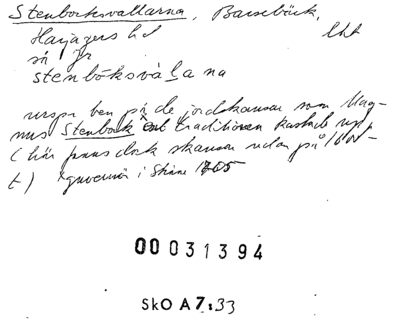 Stenbocksvallarna, Barsebäck,
Harjagers hd lht
så fr
stenbòksvàLa na
urspr ben på de jordskansar som Mag-
nus Stenbock xent traditionen kastade upp
(här fanns dock skansar redan på 1600-
t) xguvernör i Skåne 1705
00031394
SkO A7:33